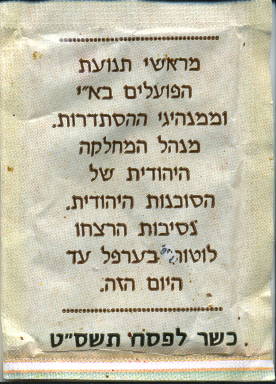 מראשי תנועת
הפועלים בא"י
וממנהיגי ההסתדרות.
מנהל המחלקה
היהודית של
הסוכנות היהודית.
נסיבות הרצחו
לוטות בערפל עד
היום הזה.
כשר לפסח תשס"ט